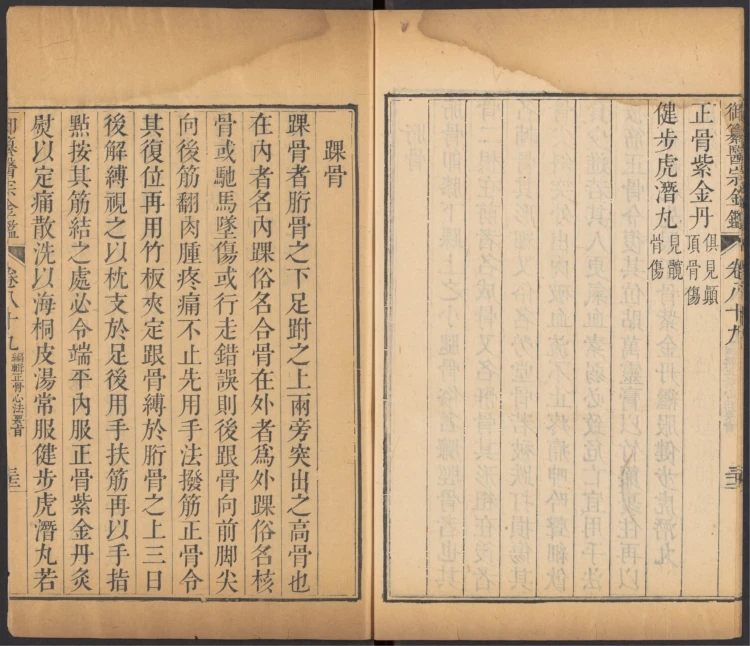 御纂醫宗金鑑
卷八十九
三二
正骨紫金丹
俱見顛
頂骨傷
健步虎潛丸
見髋
骨傷
踝骨
踝骨者胻骨之下足跗之上兩旁突出之高骨也
在內者名內踝俗名合骨在外者爲外踝俗名核
骨或馳馬墜傷或行走錯誤則後跟骨向前脚尖
向後筋翻肉腫疼痛不止先用手法撥筋正骨令
其復位再用竹板夾定跟骨縛於胻骨之上三日
後解縛視之以枕支於足後用手扶筋再以手指
點按其筋結之處必令端平內服正骨紫金丹灸
熨以定痛散洗以海桐皮湯常服健步虎潛丸若
御纂醫宗金鑑
卷八十九
編輯正骨心法要旨